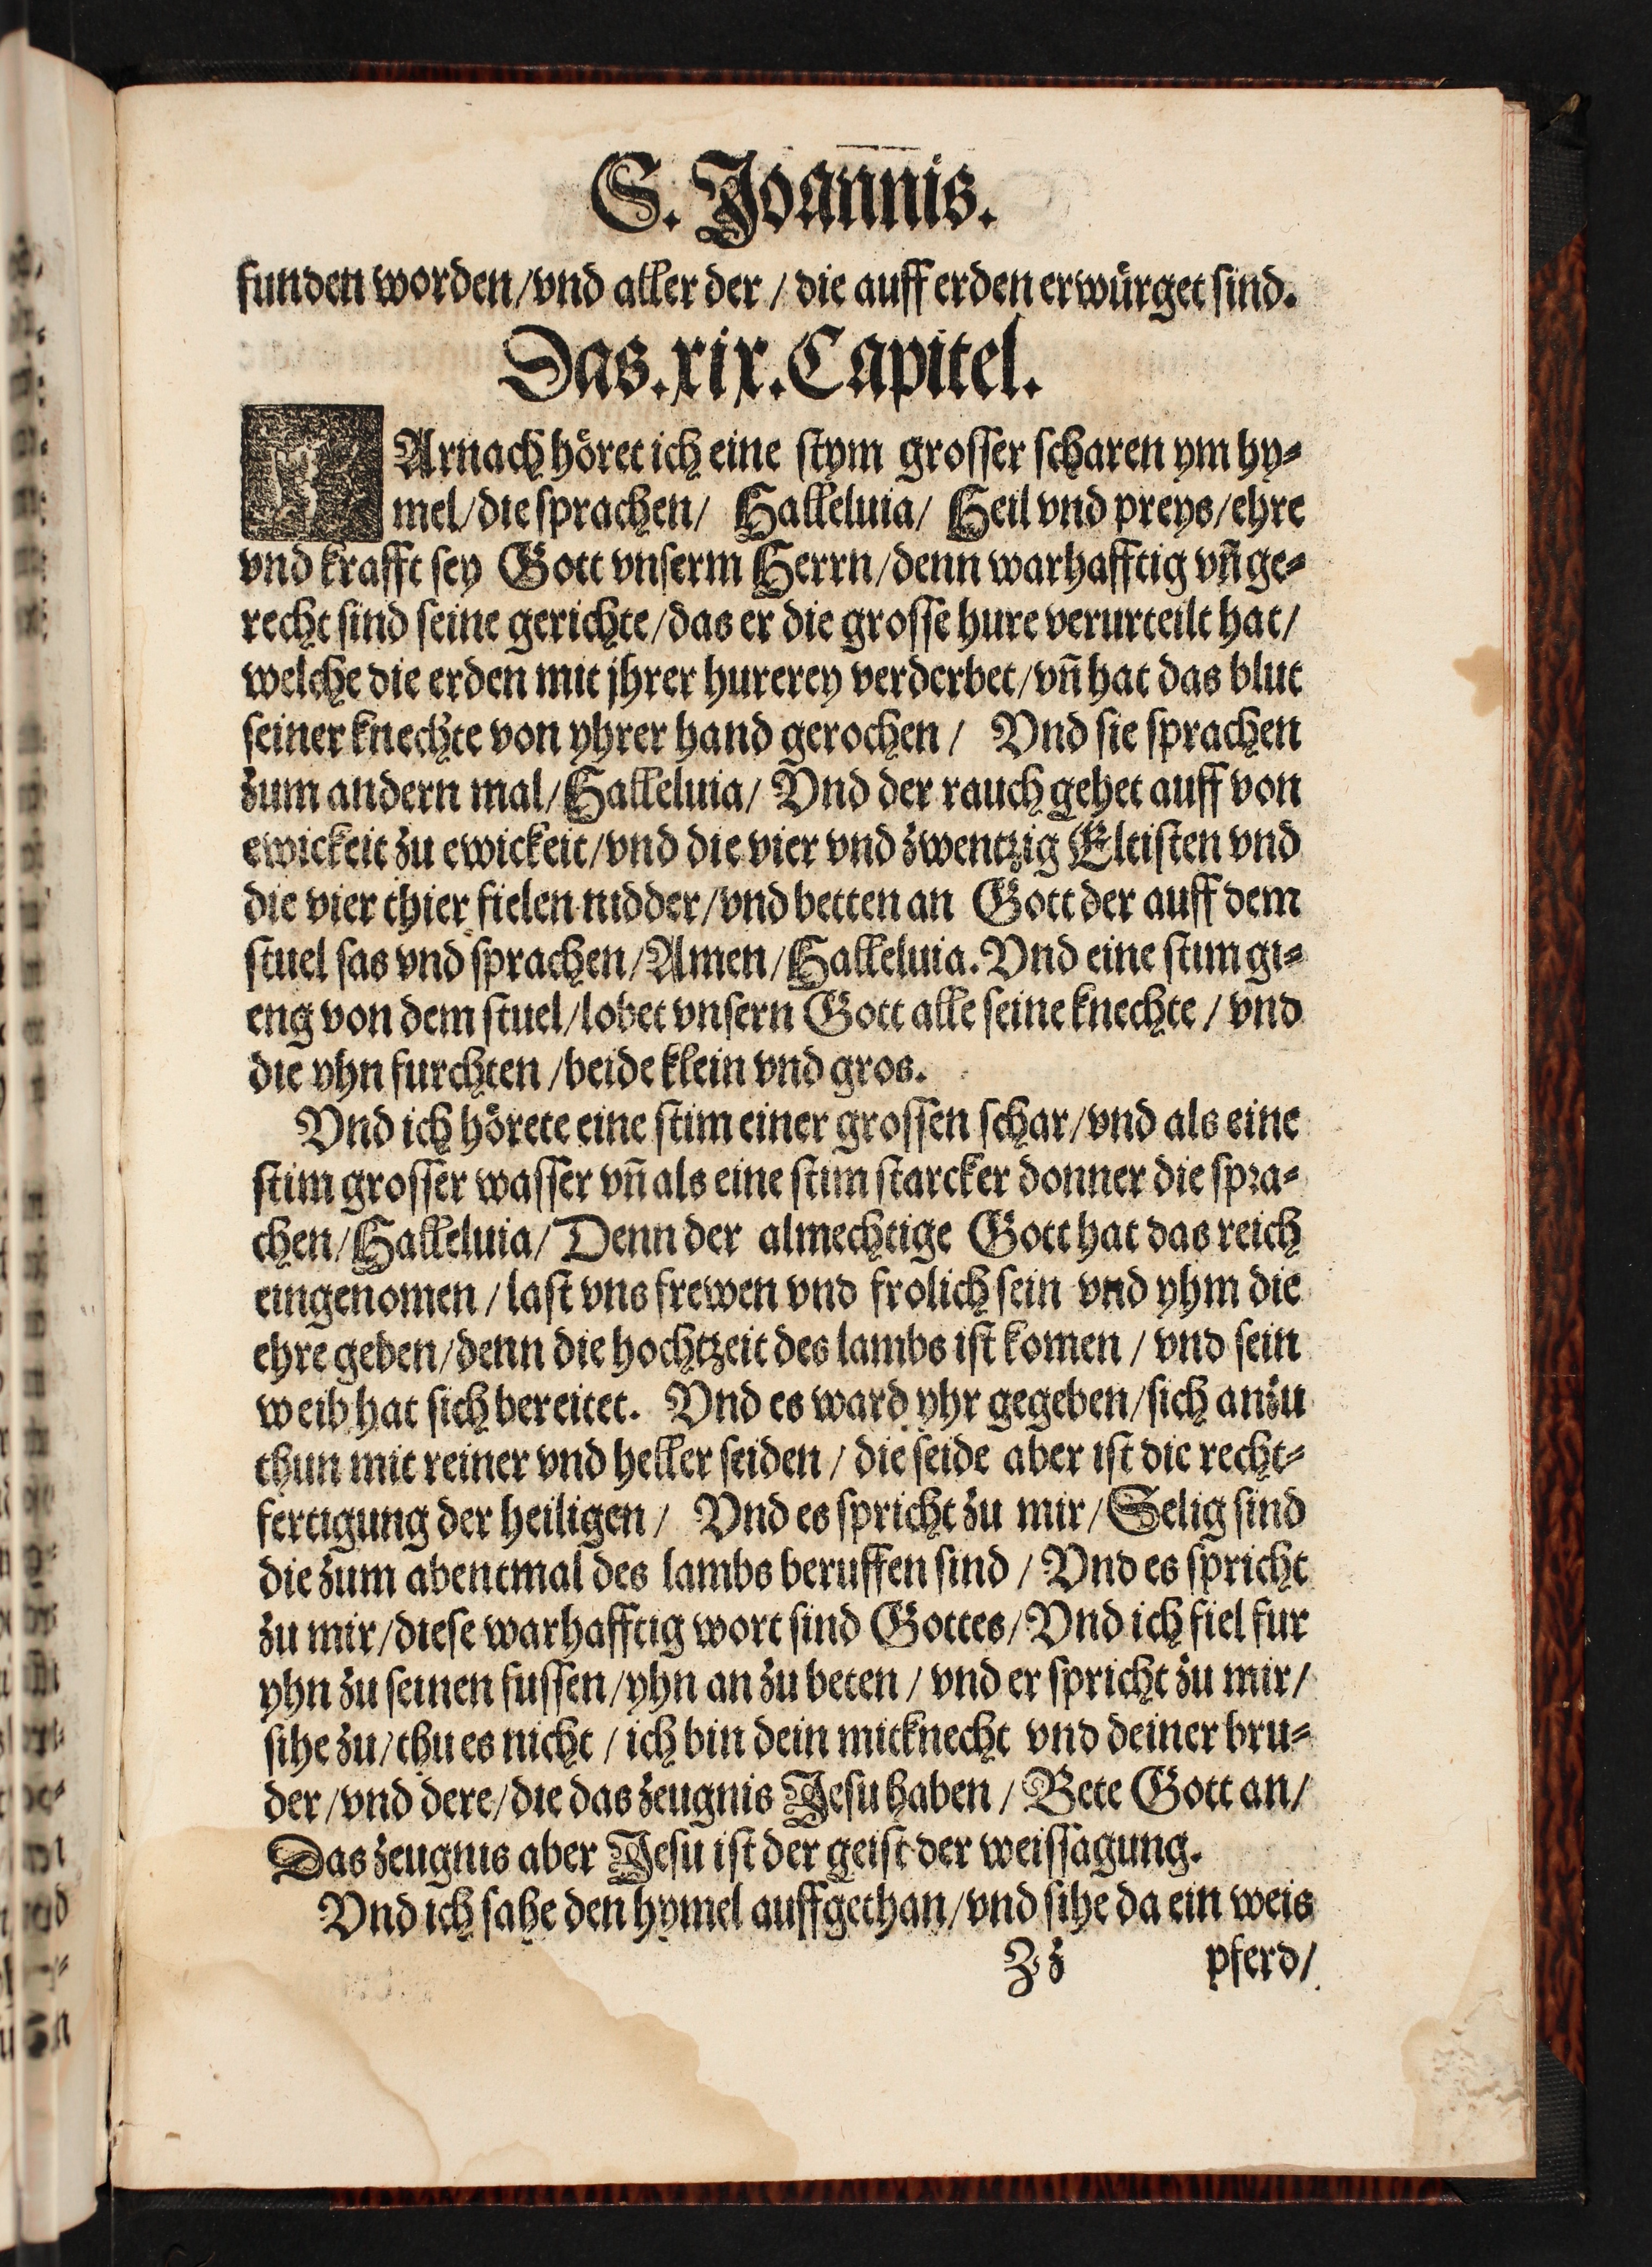 S. Joannis.
funden worden/vnd aller der / die auff erden erwürget sind.
Das.xix.Capitel.
DArnach höret ich eine stym grosser scharen ym hy-
mel/die sprachen/ Halleluia/ Heil vnd preys/ehre
vnd krafft sey Gott vnserm Herrn/denn warhafftig vn̄ ge-
recht sind seine gerichte/das er die grosse hure verurteilt hat/
welche die erden mit jhrer hurerey verderbet/vn̄ hat das blut
seiner knechte von yhrer hand gerochen / Vnd sie sprachen
zum andern mal/Halleluia/ Vnd der rauch gehet auff von
ewickeit zu ewickeit/vnd die vier vnd zwentzig Eltisten vnd
die vier thier fielen nidder/vnd betten an Gott der auff dem
stuel sas vnd sprachen/Amen/Halleluia. Vnd eine stim gi-
eng von dem stuel/lobet vnsern Gott alle seine knechte / vnd
die yhn furchten /beide klein vnd gros.
Vnd ich hörete eine stim einer grossen schar/vnd als eine
stim grosser wasser vn̄ als eine stim starcker donner die spra-
chen/Halleluia/Denn der almechtige Gott hat das reich
eingenomen / last vns frewen vnd frolich sein vnd yhm die
ehre geben/denn die hochtzeit des lambs ist komen / vnd sein
weib hat sich bereitet. Vnd es ward yhr gegeben/sich anzu
thun mit reiner vnd heller seiden / die seide aber ist die recht-
fertigung der heiligen / Vnd es spricht zu mir/Selig sind
die zum abentmal des lambs beruffen sind / Vnd es spricht
zu mir/diese warhafftig wort sind Gottes/Vnd ich fiel fur
yhn zu seinen fussen/yhn an zu beten / vnd er spricht zu mir/
sihe zu/thu es nicht / ich bin dein mitknecht vnd deiner bru-
der/vnd dere/die das zeugnis Jesu haben / Bete Gott an/
Das zeugnis aber Jesu ist der geist der weissagung.
Vnd ich sahe den hymel auffgethan/vnd sihe da ein weis
Zz pferd/